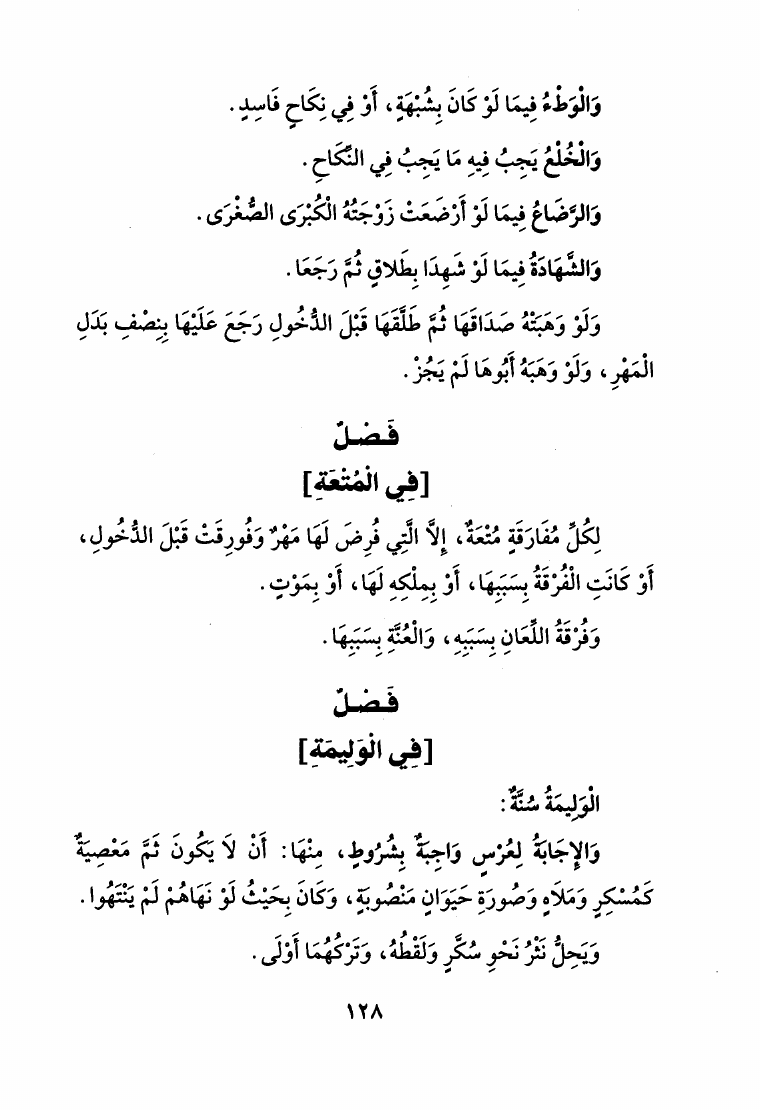 وَالْوَطْءُ فِيمَا لَوْ كَانَ بِشُبْهَةٍ، أَوْ فِي نِكَاحٍ فَاسِدٍ.
وَالْخُلْعُ يَجِبُ فِيهِ مَا يَجِبُ فِي النِّكَاحِ.
وَالرَّضَاعُ فِيمَا لَوْ أَرْضَعَتْ زَوْجَتُهُ الْكُبْرَى الصُّغْرَى.
وَالشَّهَادَةُ فِيمَا لَوْ شَهِدَا بِطَلاَقٍ ثُمَّ رَجَعَا.
وَلَوْ وَهَبَتْهُ صَدَاقَهَا ثُمَّ طَلَّقَهَا قَبْلَ الدُّخُولِ رَجَعَ عَلَيْهَا بِنِصْفِ بَدَلِ
الْمَهْرِ، وَلَوْ وَهَبَهُ أَبُوهَا لَمْ يَجُزْ.
فَصْلٌ
[فِي الْمُتْعَةِ]
لِكُلِّ مُفَارَقَةٍ مُتْعَةٌ، إِلاَّ الَّتِي فُرِضَ لَهَا مَهْرٌ وَفُورِقَتْ قَبْلَ الدُّخُولِ،
أَوْ كَانَتِ الْفُرْقَةُ بِسَبَبِهَا، أَوْ بِمِلْكِهِ لَهَا، أَوْ بِمَوْتٍ.
وَفُرْقَةُ اللِّعَانِ بِسَبَبِهِ، وَالْعُنَّةِ بِسَبَبِهَا.
فَصْلٌ
[فِي الْوَلِيمَةِ]
الْوَلِيمَةُ سُنَّةٌ:
وَالإِجَابَةُ لِعُرْسٍ وَاجِبَةٌ بِشُرُوطٍ، مِنْهَا: أَنْ لاَ يَكُونَ ثَمَّ مَعْصِيَةٌ
كَمُسْكِرٍ وَمَلاَهٍ وَصُورَةِ حَيَوَانٍ مَنْصُوبَةٍ، وَكَانَ بِحَيْثُ لَوْ نَهَاهُمْ لَمْ يَنْتَهُوا.
وَيَحِلُّ نَثْرُ نَحْوِ سُكَّرٍ وَلَقْطُهُ، وَتَرْكُهُمَا أَوْلَى.
١٢٨